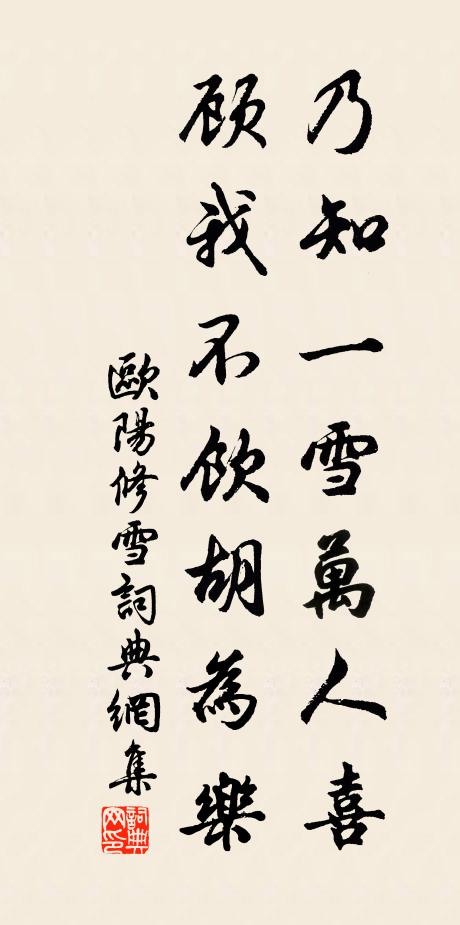 乃知一雪萬人喜
顾我不飲胡為樂
歐陽修雪詞典網集
詞典网印